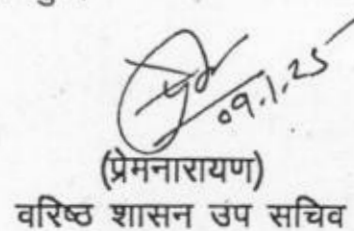 09.1.25
(प्रेमनारायण)
वरिष्ठ शासन उप सचिव